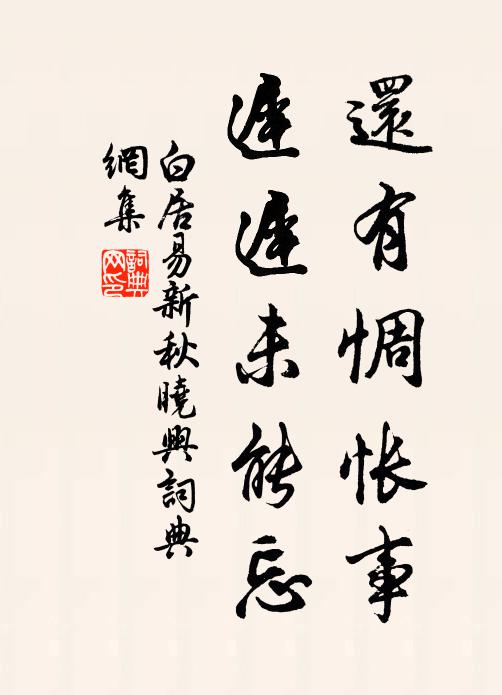 還有惆怅事
遲遲未能忘
白居易新秋曉興詞典
網集
詞典
网印